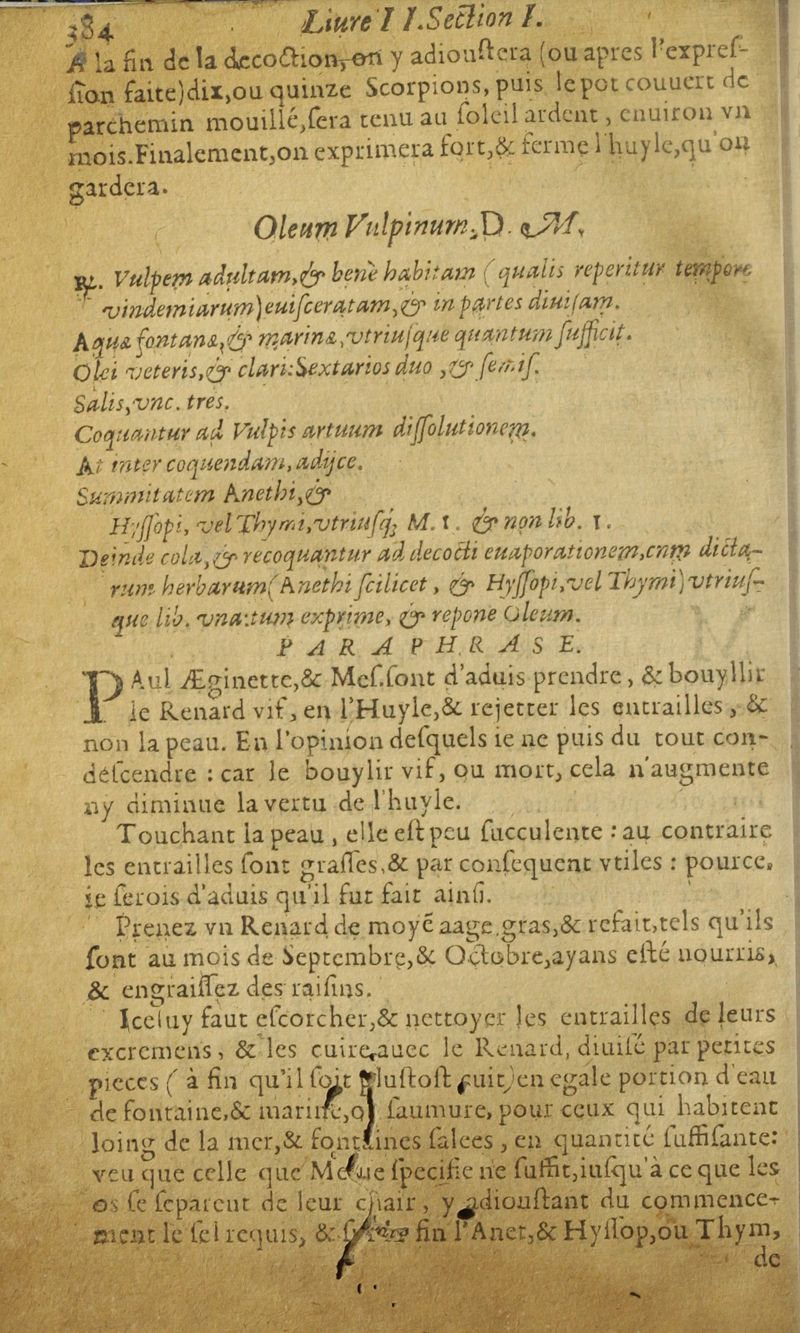 384 Liure I I. Section I.
A la fin de la decoction, on y adioustera (ou apres l'expres-
sion faite) dix, ou quinze Scorpions, puis le pot couuert de
parchemin mouillé, sera tenu au soleil ardent, enuiron vn
mois. Finalement, on exprimera fort, & ferme l'huyle, qu'on
gardera.
Oleum Vulpinum, D. M.
℞. Vulpem adultam, & benè habitam (qualis reperitur tempore
vindemiarum) euisceratam, & in partes diuisam.
Aquæ fontanæ, & marinæ, vtriusque quantum sufficit.
Olei veteris, & clari: Sextarios duo, & semis.
Salis, vnc. tres.
Coquantur ad Vulpis artuum dissolutionem.
At inter coquendam, adijce.
Summitatem Anethi, &
Hyssopi, vel Thymi, vtriusq; M. 1. & non lib. 1.
Deinde cola, & recoquantur ad decocti euaporationem, cnm dicta-
rum herbarum (Anethi scilicet, & Hyssopi, vel Thymi) vtrius-
que lib. vna: tum exprime, & repone Oleum.
PARAPHRASE.
PAul Æginette, & Mes. sont d'aduis prendre, & bouyllir
le Renard vif, en l'Huyle, & rejetter les entrailles, &
non la peau. En l'opinion desquels ie ne puis du tout con-
déscendre : car le bouylir vif, ou mort, cela n'augmente
ny diminue la vertu de l'huyle.
Touchant la peau, elle est peu succulente : au contraire
les entrailles sont grasses, & par consequent vtiles : pource,
ie serois d'aduis qu'il fut fait ainsi.
Prenez vn Renard de moyẽ aage, gras, & refait, tels qu'ils
sont au mois de Septembre, & Octobre, ayans esté nourris,
& engraissez des raisins.
Iceluy faut escorcher, & nettoyer les entrailles de leurs
excremens, & les cuire, auec le Renard, diuisé par petites
pieces (à fin qu'il soit plustost cuit) en egale portion d'eau
de fontaine, & marine, saumure, pour ceux qui habitent
loing de la mer, & fontaines salees, en quantité suffisante:
veu que celle que Mesue specifie ne suffit, iusqu'à ce que les
os se separent de leur chair, y adioustant du commence-
ment le sel requis, & fin l'Anet, & Hyssop, ou Thym,
de